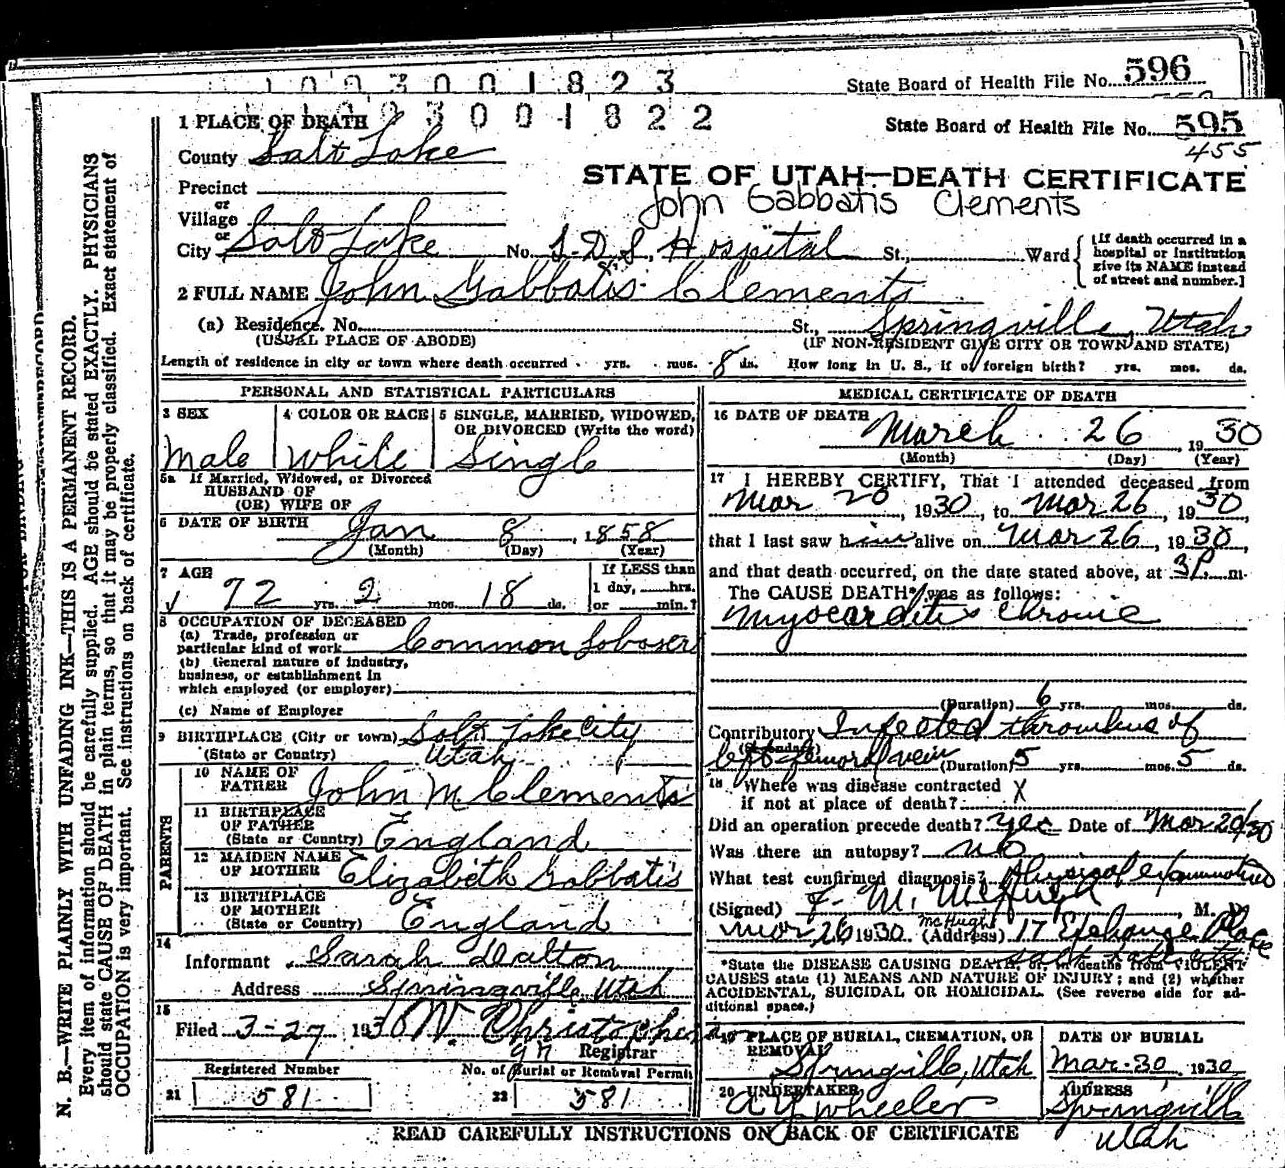 1003001823
State Board of Health File No. 596
1003001822
State Board of Health File No. 595
455
STATE OF UTAH—DEATH CERTIFICATE
John Gabbatis Clements
1 PLACE OF DEATH
County Salt Lake
Precinct
or
Village
or
City Salt Lake No. L-D S, Hospital St., Ward
[If death occurred in a
hospital or institution
give its NAME instead
of street and number.]
2 FULL NAME John Gabbatis Clements
(a) Residence. No. St., Springville, Utah
(USUAL PLACE OF ABODE) (IF NON-RESIDENT GIVE CITY OR TOWN AND STATE)
Length of residence in city or town where death occurred yrs. mos. 8 ds. How long in U. S., if of foreign birth? yrs. mos. ds.
PERSONAL AND STATISTICAL PARTICULARS
3 SEX 4 COLOR OR RACE 5 SINGLE, MARRIED, WIDOWED,
OR DIVORCED (Write the word)
Male White Single
5a If Married, Widowed, or Divorced
HUSBAND OF
(OR) WIFE OF
6 DATE OF BIRTH Jan 8, 1858
(Month) (Day) (Year)
7 AGE
If LESS than
72 yrs. 2 mos. 18 ds. 1 day, hrs.
or min.?
8 OCCUPATION OF DECEASED
(a) Trade, profession or
particular kind of work Common Laborer
(b) General nature of industry,
business, or establishment in
which employed (or employer)
(c) Name of Employer
9 BIRTHPLACE (City or town) Salt Lake City
(State or Country) Utah
PARENTS
10 NAME OF
FATHER John M. Clements
11 BIRTHPLACE
OF FATHER
(State or Country) England
12 MAIDEN NAME
OF MOTHER Elizabeth Gabbatis
13 BIRTHPLACE
OF MOTHER
(State or Country) England
14
Informant Sarah Dalton
Address Springville, Utah
15
Filed 3-27 1930 W. Christopherson
Registrar
Registered Number No. of Burial or Removal Permit
21 581 22 581
MEDICAL CERTIFICATE OF DEATH
16 DATE OF DEATH March 26 1930
(Month) (Day) (Year)
17 I HEREBY CERTIFY, That I attended deceased from
Mar 20, 1930, to Mar 26, 1930,
that I last saw him alive on Mar 26, 1930,
and that death occurred, on the date stated above, at 3P m.
The CAUSE DEATH* was as follows:
Myocarditis chronic
(Duration) 6 yrs. mos. ds.
Contributory Infected thrombus of
(Secondary)
left femoral vein (Duration) 5 yrs. mos. 5 ds.
18 Where was disease contracted
if not at place of death? X
Did an operation precede death? yes Date of Mar 20/30
Was there an autopsy? no
What test confirmed diagnosis? Physical examination
(Signed) F. M. McHugh, M. D.
McHugh
Mar 26 1930 (Address) 17 Exchange Place
Salt Lake City
*State the DISEASE CAUSING DEATH, or, in deaths from VIOLENT
CAUSES state (1) MEANS AND NATURE OF INJURY; and (2) whether
ACCIDENTAL, SUICIDAL OR HOMICIDAL. (See reverse side for additional space.)
19 PLACE OF BURIAL, CREMATION, OR DATE OF BURIAL
REMOVAL
Springville, Utah Mar-30 1930
20 UNDERTAKER ADDRESS
A Y Wheeler Springville
Utah
READ CAREFULLY INSTRUCTIONS ON BACK OF CERTIFICATE
N. B.—WRITE PLAINLY WITH UNFADING INK—THIS IS A PERMANENT RECORD.
Every item of information should be carefully supplied. AGE should be stated EXACTLY. PHYSICIANS
should state CAUSE OF DEATH in plain terms, so that it may be properly classified. Exact statement of
OCCUPATION is very important. See instructions on back of certificate.